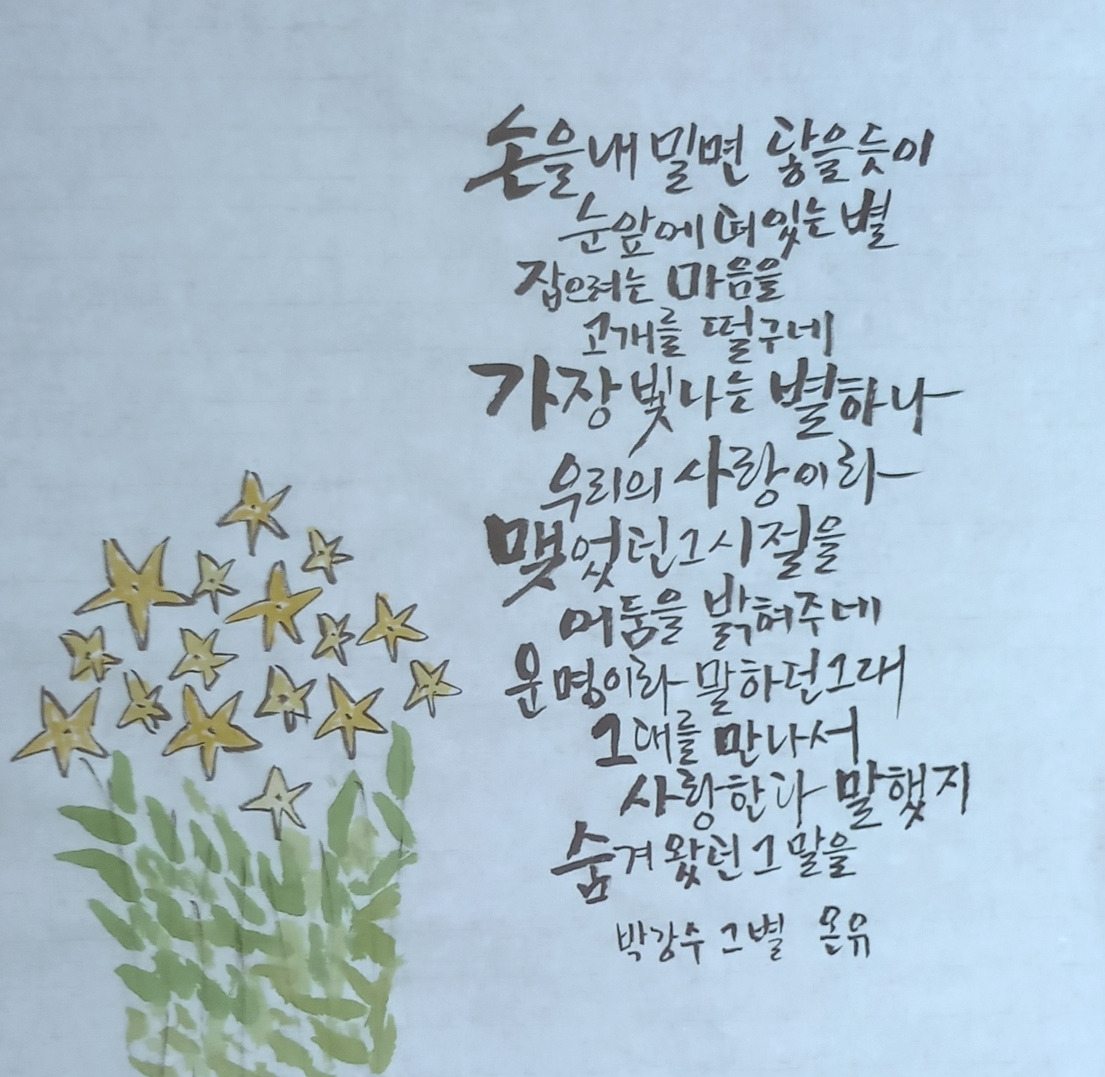 손을 내 밀면 닿을듯이
눈앞에 떠있는 별
잡으려는 마음을
고개를 떨구네
가장 빛나는 별하나
우리의 사랑이라
맺었던 그 시절을
어둠을 밝혀주네
운명이라 말하던 그대
그대를 만나서
사랑한다 말했지
숨겨 왔던 그 말을
박강수 그별 온유